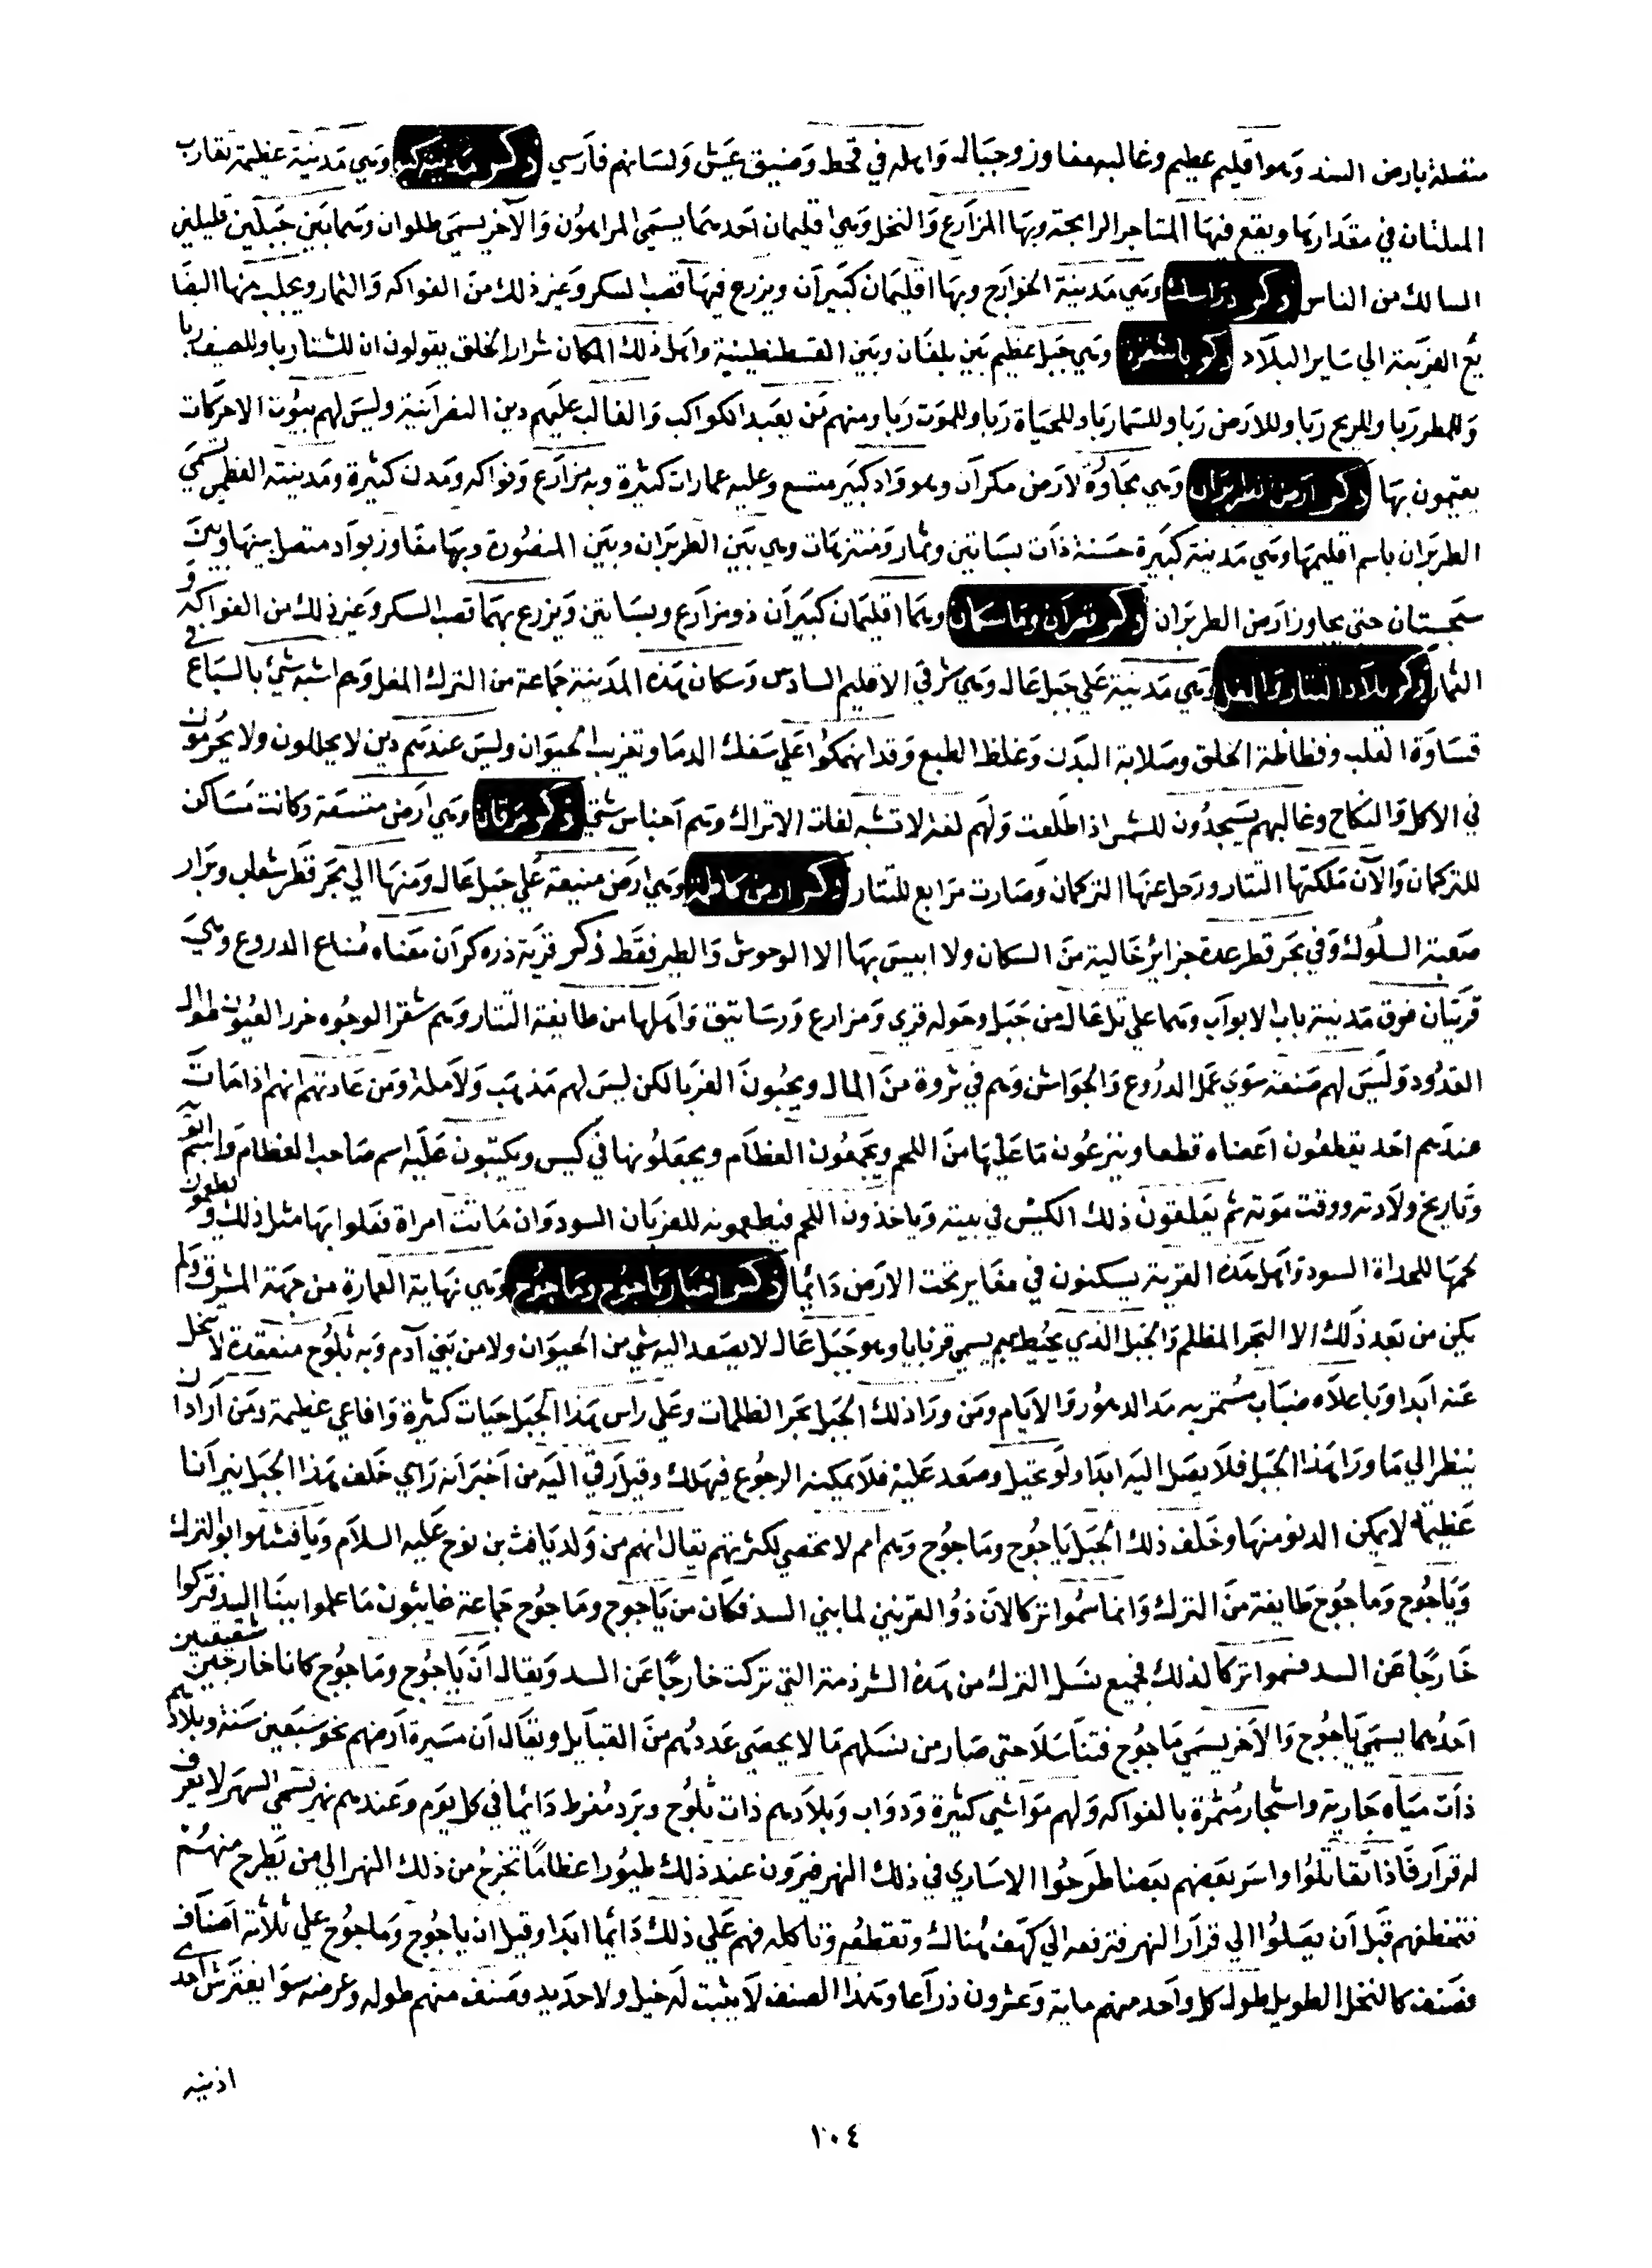 متصلة بارض السند وهوا قليم عظيم وغالبه مفاوز وجبال وَاهله في قحط وَضيق عيَش وَلسَانهم فارَسي ذكر مَدينة كيه وَهي مَدينة عظيمة تقارب
الملتان في مقدارها ويقع فيهَا المتاجر الرابحة وبهَا المزَارع وَالنخل وَهي اقليمان احَدهمَا يسمَى المراهوُن وَالآخر يسمَى طلوان وَهما بَين جَبلَين قليلين
السالك من الناس ذكر دزاسك وَهي مَدينة الخوَارج وبهَا اقليمَان كَبيرَان ويزرع فيهَا قصب السكر وَغير ذلك منَ الفواكه وَالثمار ويجلب منها البضَا
يع الغريبة الي سَاير البلاَد ذكر باشغرد وَهي جَبل عظيم بَين بلغَان وبَين القسطنطينية وَاهل ذلك المكان شرار الخلق يقولون ان للشتا ربا وللصيف ربا
وَللمطر ربا وللريح رَبا وللارَض رَبا وللسَما ربا وللحيَاة رَبا وللموَت رَبا ومنهم مَن يعَبد الكواكب وَالغالب عليهم دين النصرَانية وليسَ لهم بيوُت الا حركات
يقيمون بهَا ذكر ارَض الطربران وَهي مجَاوُرة لارَض مكرَان وهو وَاد كبَير متسع وعليه عمارات كثيرة وبه مزَارَع وَفواكه وَمَدن كثيرة ومَدينته العظمي تسَمَي
الطربرَان باسم اقليمهَا وَهي مَدينة كبَيرَة حسَنة ذاَت بسَاتين وثمار وَمنتزهَات وهي بَين الطربَران وبَين المنصُورة وبهَا مفَاوز بوَاد متصل بينهَا وبينَ
سجَستان حتي يجاوز ارَض الطربَران ذكر قترَان وماسكان وهمَا اقليمَان كبَيرَان ذو مزارَع وبسَاتين وَيزرع بهمَا قصب السكر وَغير ذلك من الفواكه و
الثمار ذكر بلاَد التتار والمغل وَهي مَدينة عَلي جَبل عَال وَهي شرقي الاقليم السادَس وَسكان هَذه المدَينة جمَاعة من الترك المغل وَهم اشبه شيْ بالسبَاع في
قسَاوَة القلب وفظاظة الخلق وصَلابة البَدَن وَغلظ الطبع وَقد انهمَكوُا عَلي سَفك الدمَا وتعذيب الحيوَان وليسَ عندهَم دين لا يحللون ولا يحُرمُون
في الاكل وَالنكاح وغالبهم يَسَجدُون للشمس اذا طلَعت وَلهَم لغة لا تشبه لغات الاتراك وَهم اَجناس شتي ذكر مرقان وَهي ارَض متسَعة وَكانت مَسَاكن
للتركمان وَالآن مَلكتهَا التتار ورَحل عنهَا التركمان وَصَارت مرَابع للتتار ذكر ارض كاظمة وَهي ارَض منيعة عَلي جَبل عَال وَمنهَا الي بحَر قَطر شعَاب وبرَار
صَعبة السلُوك وَفي بحَر قطر عدة جزائر خَالية منَ السكان ولا انيسَ بهَا الا الوحوش وَالطير فقَط ذكر قريَة ذره كرَان مَعناه صُناع الدروع وَهي
قريَتان فوَق مَدينة باب الابوَاب وَهما عَلي تل عَال من جَبَل وحَوله قري وَمزارع وَرسَاتيق وَاهلها من طايفة التتار وَهم شقر الوجُوه خزر العيُون طوال
القدُود وَليسَ لهم صَنعة سوَي عمَل الدرُوع وَالجوَاشن وَهم في ثروة منَ المال ويحبُونَ الغربا لكن ليسَ لهم مَذهَب وَلاَ ملة وَمن عَادتهم انهم اذا مَاتَ
عندهم احَد يقطعُون اعَضاه قطعا وينزعُون مَا عَليهَا منَ اللحم ويجمَعُون العظاَم ويجعَلُونها في كيس ويكتبون عَليَه اسم صَاحب العظام وَاسم ابيه
وَتاريخ ولاَدته ووقت مَوته ثم يَعَلقون ذلك الكيسْ في بيته وَياخذون اللحم فيطعمونه للغربَان السود وَان مَاتت امراة فعَلوا بهَا مثل ذلك ويطعمون
لحمهَا للحداة السود وَاهل هَذه القرية يسكنون في مغَاير تحت الارَض دَائما ذكر اخبار يَاجُوج ومَاجُوج وَهي نهَاية العمارة من جهَة المشرق وَلم
يكن من بَعد ذَلك الا البَحر المظلم وَالجَبل الذي يحُيط بهم يسمي قرنايا وهو جَبَل عَال لا يصَعد اليه شي من الحيوَان ولا من بَني آدم وَبه ثلُوُج منعقدة لا تنحل
عَنه ابَدا وَباعلاَه ضبَاب مُستمر به مَدا الدهوُر وَالايَام ومَن ورَا ذلك الجبَل بحَر الظلمات وعَلي راس هَذا الجَبَل حيَات كثيرة وَافاعي عَظيمة ومَن اَرادَ ان
ينظر الي مَا ورَا هَذا الجَبل فلاَ يصَل اليَه ابَدَا ولَو تحيل وصعَد عَليهْ فلاَ يمكنه الرجوُع فيهَلك وَقيل رقي اليَه من اَخبَر انه رَاي خَلف هَذا الجبَل نيرَانا
عَظيمة لا يمكن الدنو منهَا وخَلف ذلك الجبَل يَاجُوج ومَاجُوج وَهم امم لا تحصي لكثرتهم يقال انهم من وَلد يَافث بن نوح عَليه السلاَم وَيَافث هو ابو الترك
وَيَاجُوج وَمَاجوُج طَايفة منَ الترك وَانما سُموا تركا لانَ ذوُ القرنين لما بني السد فكان من يَاجوج وَمَاجوُج جَماعة غايبُون مَا علموا ببنَا السد فتركوا
خَارجًا عَن السد فسموا تركا لذلك فجميع نسَل الترك من هَذه الشرذمة التي تركت خارجًا عَن السد وَيقال انَ يَاجُوج ومَاجوُج كانا خارجَين شقيقين
احَدُهما يسمَي يَاجُوج وَالاَخر يسمَي مَاجوُج فتنَاسَلاَ حتي صَار من نسَلهم مَا لا يحصَي عَددهُم منَ القبَايل ويقَال اَن مسَيرة ارَضهم نحو سَبعَين سَنة وبلادهم
ذاَت ميَاه جَارية واشجار مُثمرة بالفواكه وَلهم موَاشي كثيرة وَدوَاب وَبلاَدهم ذات ثلوُج وبرَد مُفرط دَائما في كل يوَم وعَندهم نهر يسمي السهَر لا يعَرف
له قرَار فاذا تقاتلُوُا واسَر بعَضهم بعَضا طرَحُوا الاسَاري في ذلك النهر فيرَون عند ذلك طيُورا عظامًا تخرجُ من ذلك النهر الي من يطَرح منهُمْ
فتخطفهم قبَل اَن يصَلُوُا الي قرَار النهر فترفعه الَي كهَف هُناك وتقطعُه وَتاكله فهم عَلي ذلك دَائما ابَدا وقيل ان ياجوُج وَمَاجوُج علي ثلاَثة اصَناف
فصَنف كالنخل الطويل طول كل واحَد منهم ماية وَعشرون ذرَاعا وهَذا الصنف لاَ يثبت لَه خيل ولا حدَيد وَصَنف منهم طوله وعرضه سوَا يفترَش احدي
اذنيه
١٠٤